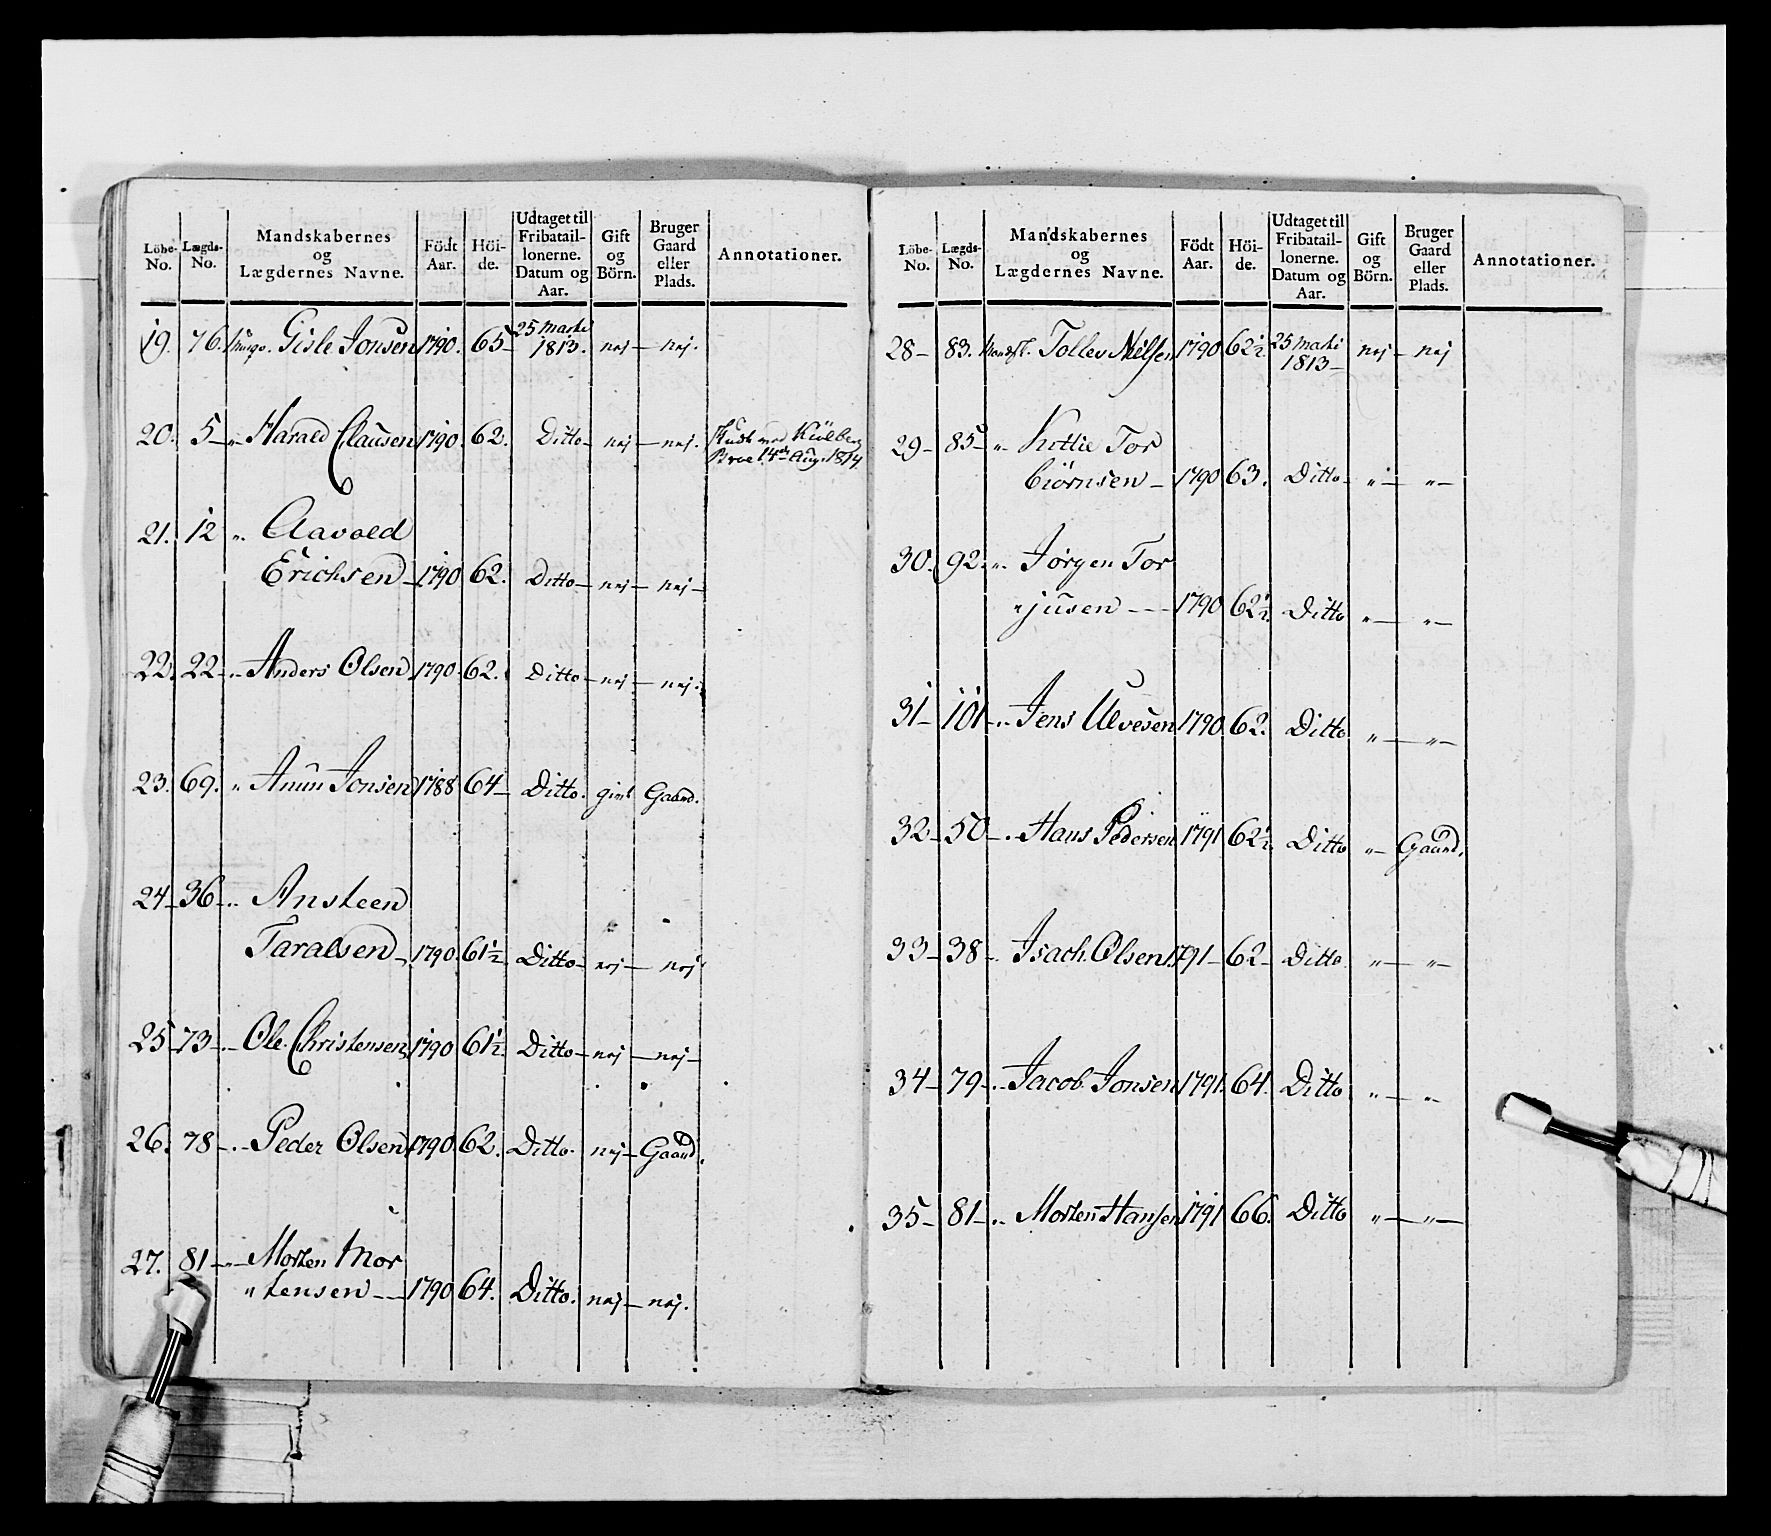 Löbe-No. Lægds-No. Mandskabernes og Lægdernes Navne. Födt Aar. Höi-de. Udtaget til Fribatail-lonerne. Datum og Aar. Gift og Börn. Bruger Gaard eller Plads. Annotationer.
19. 76. Gisle Jonsen 1790. 65 25 Martii 1813. nej nej.
20. 5 " Harald Clausen 1790. 62. Ditto nej nej. Skudt ved Kiölbergs Broe 14de Aug. 1814
21. 12 " Aavold
Erichsen 1790 62. Ditto nej nej
22. 22 " Anders Olsen 1790. 62. Ditto nej nej.
23. 69. " Anun Jonsen 1788 64 Ditto. givt Gaard.
24 36 " Ansteen
Taralsen 1790. 61½ Ditto nej nej
25 73 " Ole Christensen 1790 61½ Ditto nej nej
26. 78 " Peder Olsen 1790. 62. Ditto. nej Gaard.
27. 81 " Morten Mor
"tensen 1790 64. Ditto. nej nej.
Löbe-No. Lægds-No. Mandskabernes og Lægdernes Navne. Födt Aar. Höi-de. Udtaget til Fribatail-lonerne. Datum og Aar. Gift og Börn. Bruger Gaard eller Plads. Annotationer.
28 83. Tollev Nilsen 1790 62½ 25 Martii 1813 nej nej
29 85 " Kittil Tor
biörnsen 1790 63. Ditto " "
30. 92. " Jørgen Tor
"jusen 1790 62½ Ditto " "
31 101 " Jens Ulvesen 1790 62. Ditto " "
32 50 " Hans Pedersen 1791 62½ Ditto " Gaard.
33 38 " Isach Olsen 1791 62 Ditto " "
34 79 " Jacob Jonsen 1791. 64. Ditto " "
35 81 " Morten Hansen 1791 66. Ditto " "